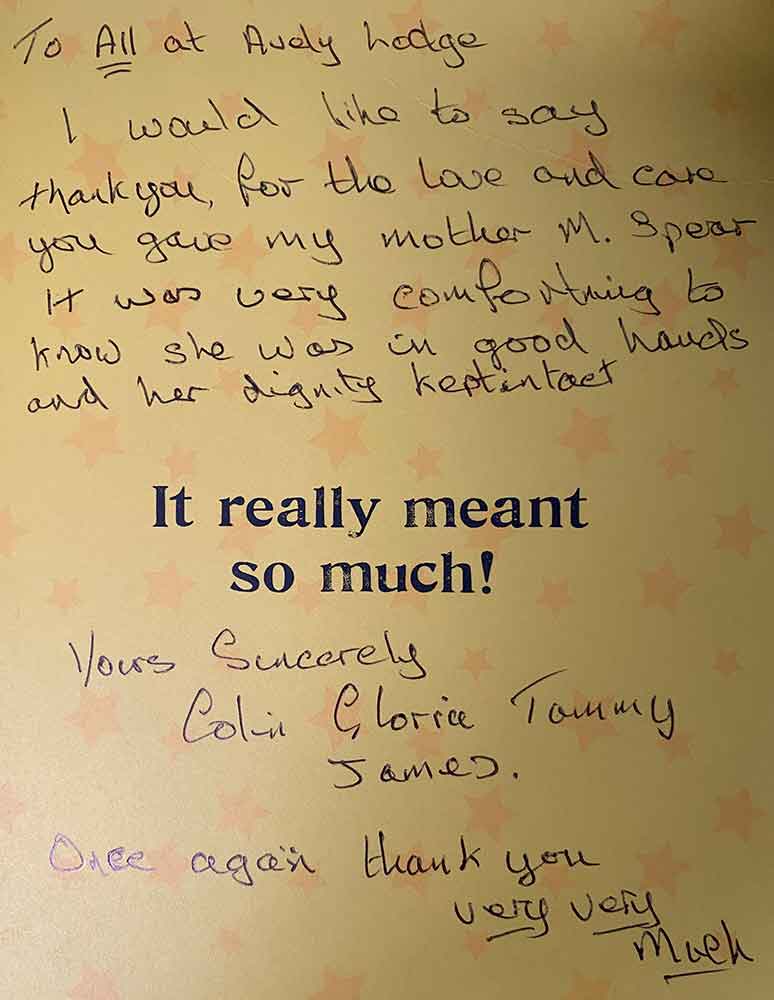 To All at Avdy Lodge
I would like to say
thankyou, for the love and care
you gave my mother M. Spear
It was very comfortning to
know she was in good hands
and her dignity kept intact
It really meant
so much!
Yours Sincerely
Colin Gloria Tommy
James.
Once again thank you
very very
Much